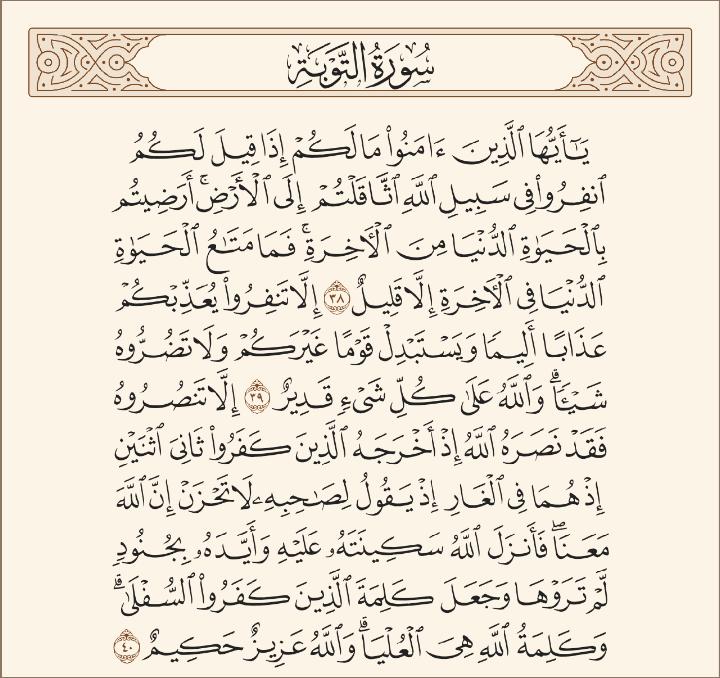 سُورَةُ التَّوْبَةِ
يَـٰٓأَيُّهَا ٱلَّذِينَ ءَامَنُوا۟ مَا لَكُمْ إِذَا قِيلَ لَكُمُ
ٱنفِرُوا۟ فِى سَبِيلِ ٱللَّهِ ٱثَّاقَلْتُمْ إِلَى ٱلْأَرْضِ ۚ أَرَضِيتُم
بِٱلْحَيَوٰةِ ٱلدُّنْيَا مِنَ ٱلْـَٔاخِرَةِ ۚ فَمَا مَتَـٰعُ ٱلْحَيَوٰةِ
ٱلدُّنْيَا فِى ٱلْـَٔاخِرَةِ إِلَّا قَلِيلٌ ٣٨ إِلَّا تَنفِرُوا۟ يُعَذِّبْكُمْ
عَذَابًا أَلِيمًا وَيَسْتَبْدِلْ قَوْمًا غَيْرَكُمْ وَلَا تَضُرُّوهُ
شَيْـًٔا ۗ وَٱللَّهُ عَلَىٰ كُلِّ شَىْءٍ قَدِيرٌ ٣٩ إِلَّا تَنصُرُوهُ
فَقَدْ نَصَرَهُ ٱللَّهُ إِذْ أَخْرَجَهُ ٱلَّذِينَ كَفَرُوا۟ ثَانِىَ ٱثْنَيْنِ
إِذْ هُمَا فِى ٱلْغَارِ إِذْ يَقُولُ لِصَـٰحِبِهِۦ لَا تَحْزَنْ إِنَّ ٱللَّهَ
مَعَنَا ۖ فَأَنزَلَ ٱللَّهُ سَكِينَتَهُۥ عَلَيْهِ وَأَيَّدَهُۥ بِجُنُودٍ
لَّمْ تَرَوْهَا وَجَعَلَ كَلِمَةَ ٱلَّذِينَ كَفَرُوا۟ ٱلسُّفْلَىٰ ۗ
وَكَلِمَةُ ٱللَّهِ هِىَ ٱلْعُلْيَا ۗ وَٱللَّهُ عَزِيزٌ حَكِيمٌ ٤٠